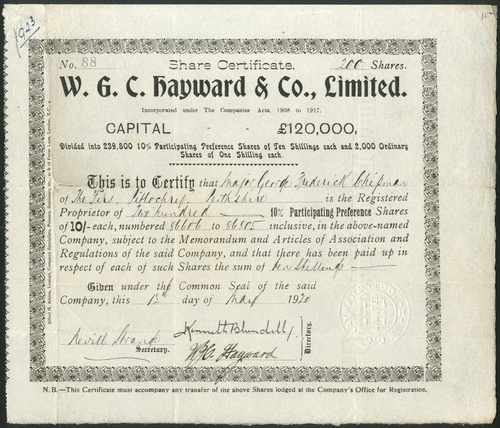 1923
No. 88 Share Certificate. 200 Shares.
W. G. C. Hayward & Co., Limited.
Incorporated under The Companies Acts, 1908 to 1917.
CAPITAL - - £120,000,
Divided into 239,800 10% Participating Preference Shares of Ten Shillings each and 2,000 Ordinary
Shares of One Shilling each.
This is to Certify that Major George Frederick Chipman
of The Firs, Pitlochry, Perthshire is the Registered
Proprietor of Two hundred 10% Participating Preference Shares
of 10/- each, numbered 56606 to 56805 inclusive, in the above-named
Company, subject to the Memorandum and Articles of Association and
Regulations of the said Company, and that there has been paid up in
respect of each of such Shares the sum of ten shillings
Given under the Common Seal of the said
Company, this 12th day of May 1920
Nevill Strange
Secretary.
Kenneth Blundell
W. G. C. Hayward
Directors.
N.B.—This Certificate must accompany any transfer of the above Shares lodged at the Company's Office for Registration.